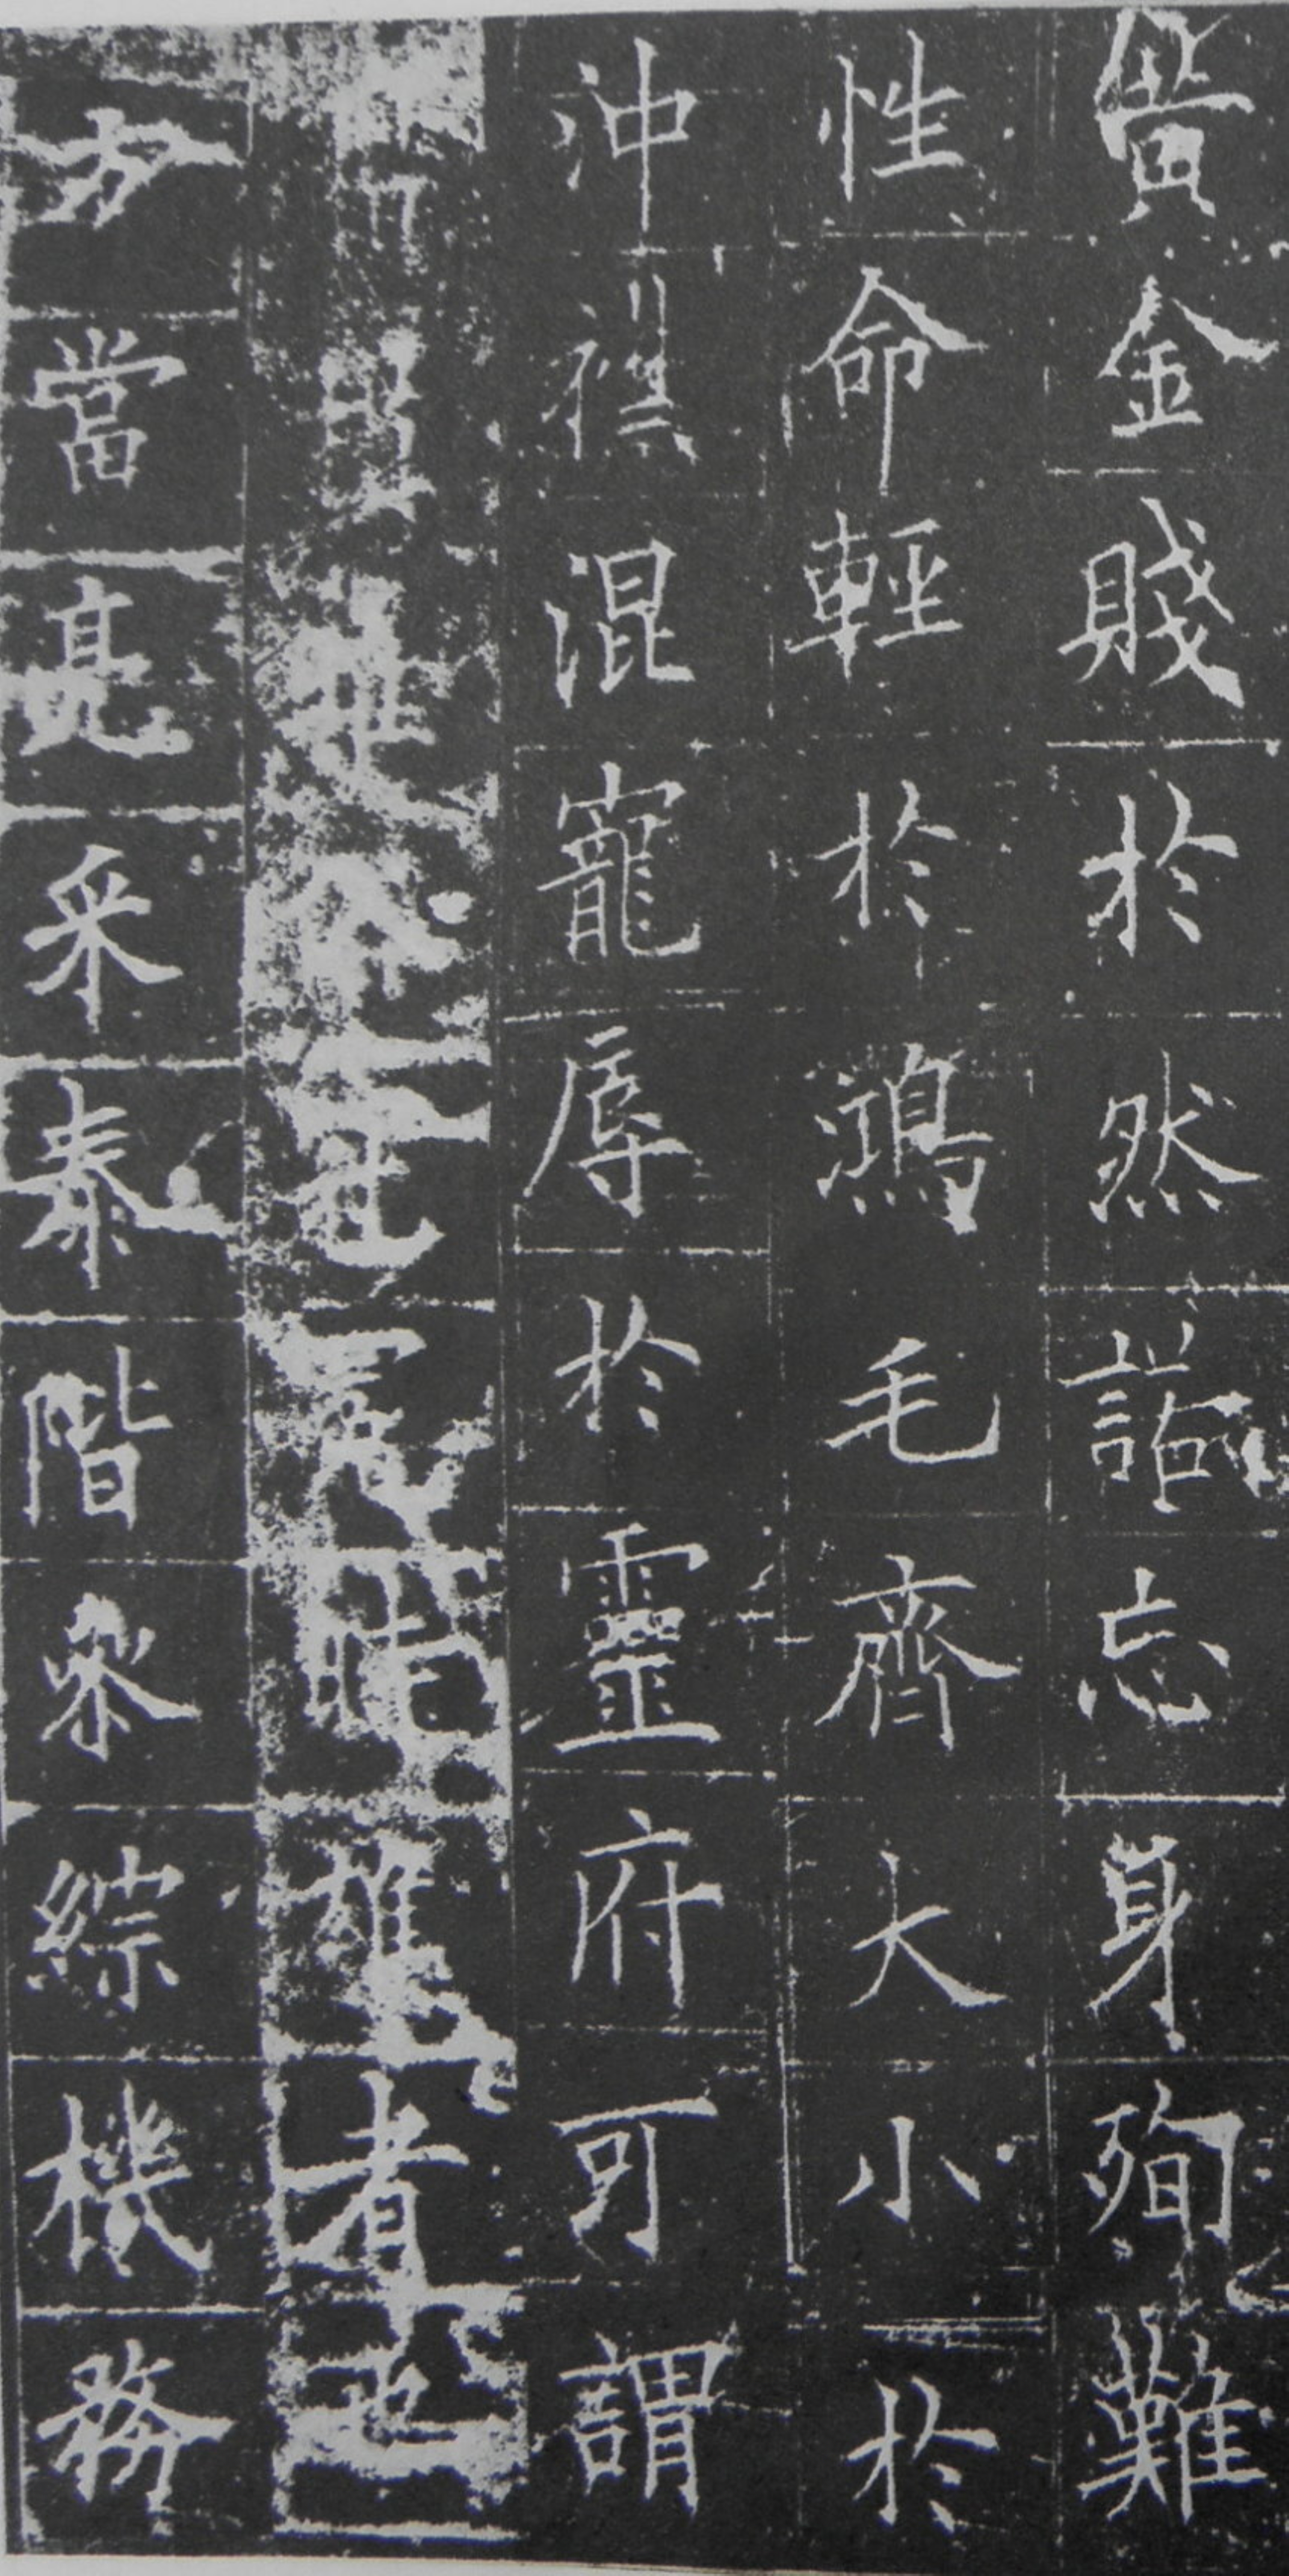 黃金賤於然諾忘身殉難
性命輕於鴻毛齊大小於
沖襟混寵辱於靈府可謂
者也
方當亮采泰階參綜機務